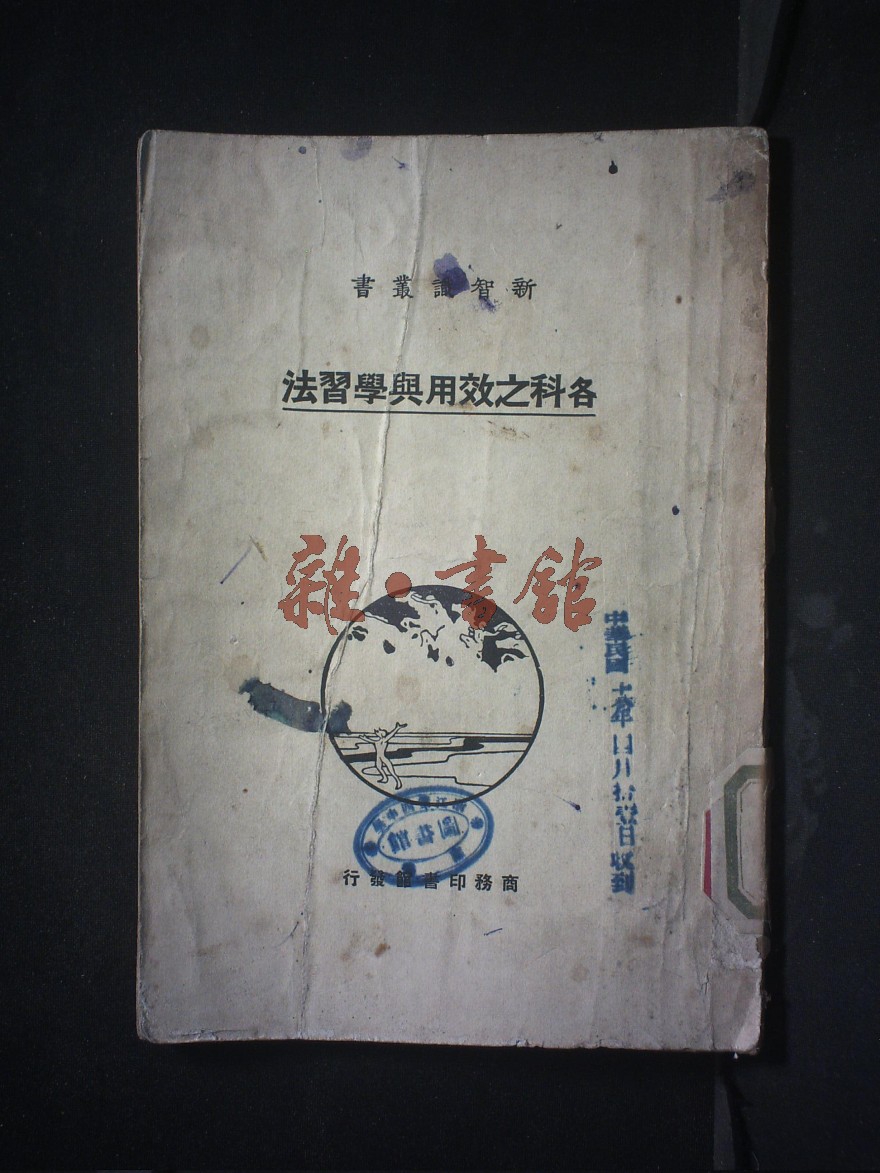 新智識叢書
各科之效用與學習法
雜·書館
圖書館
商務印書館發行
中華民國十
年四月拾
日收到